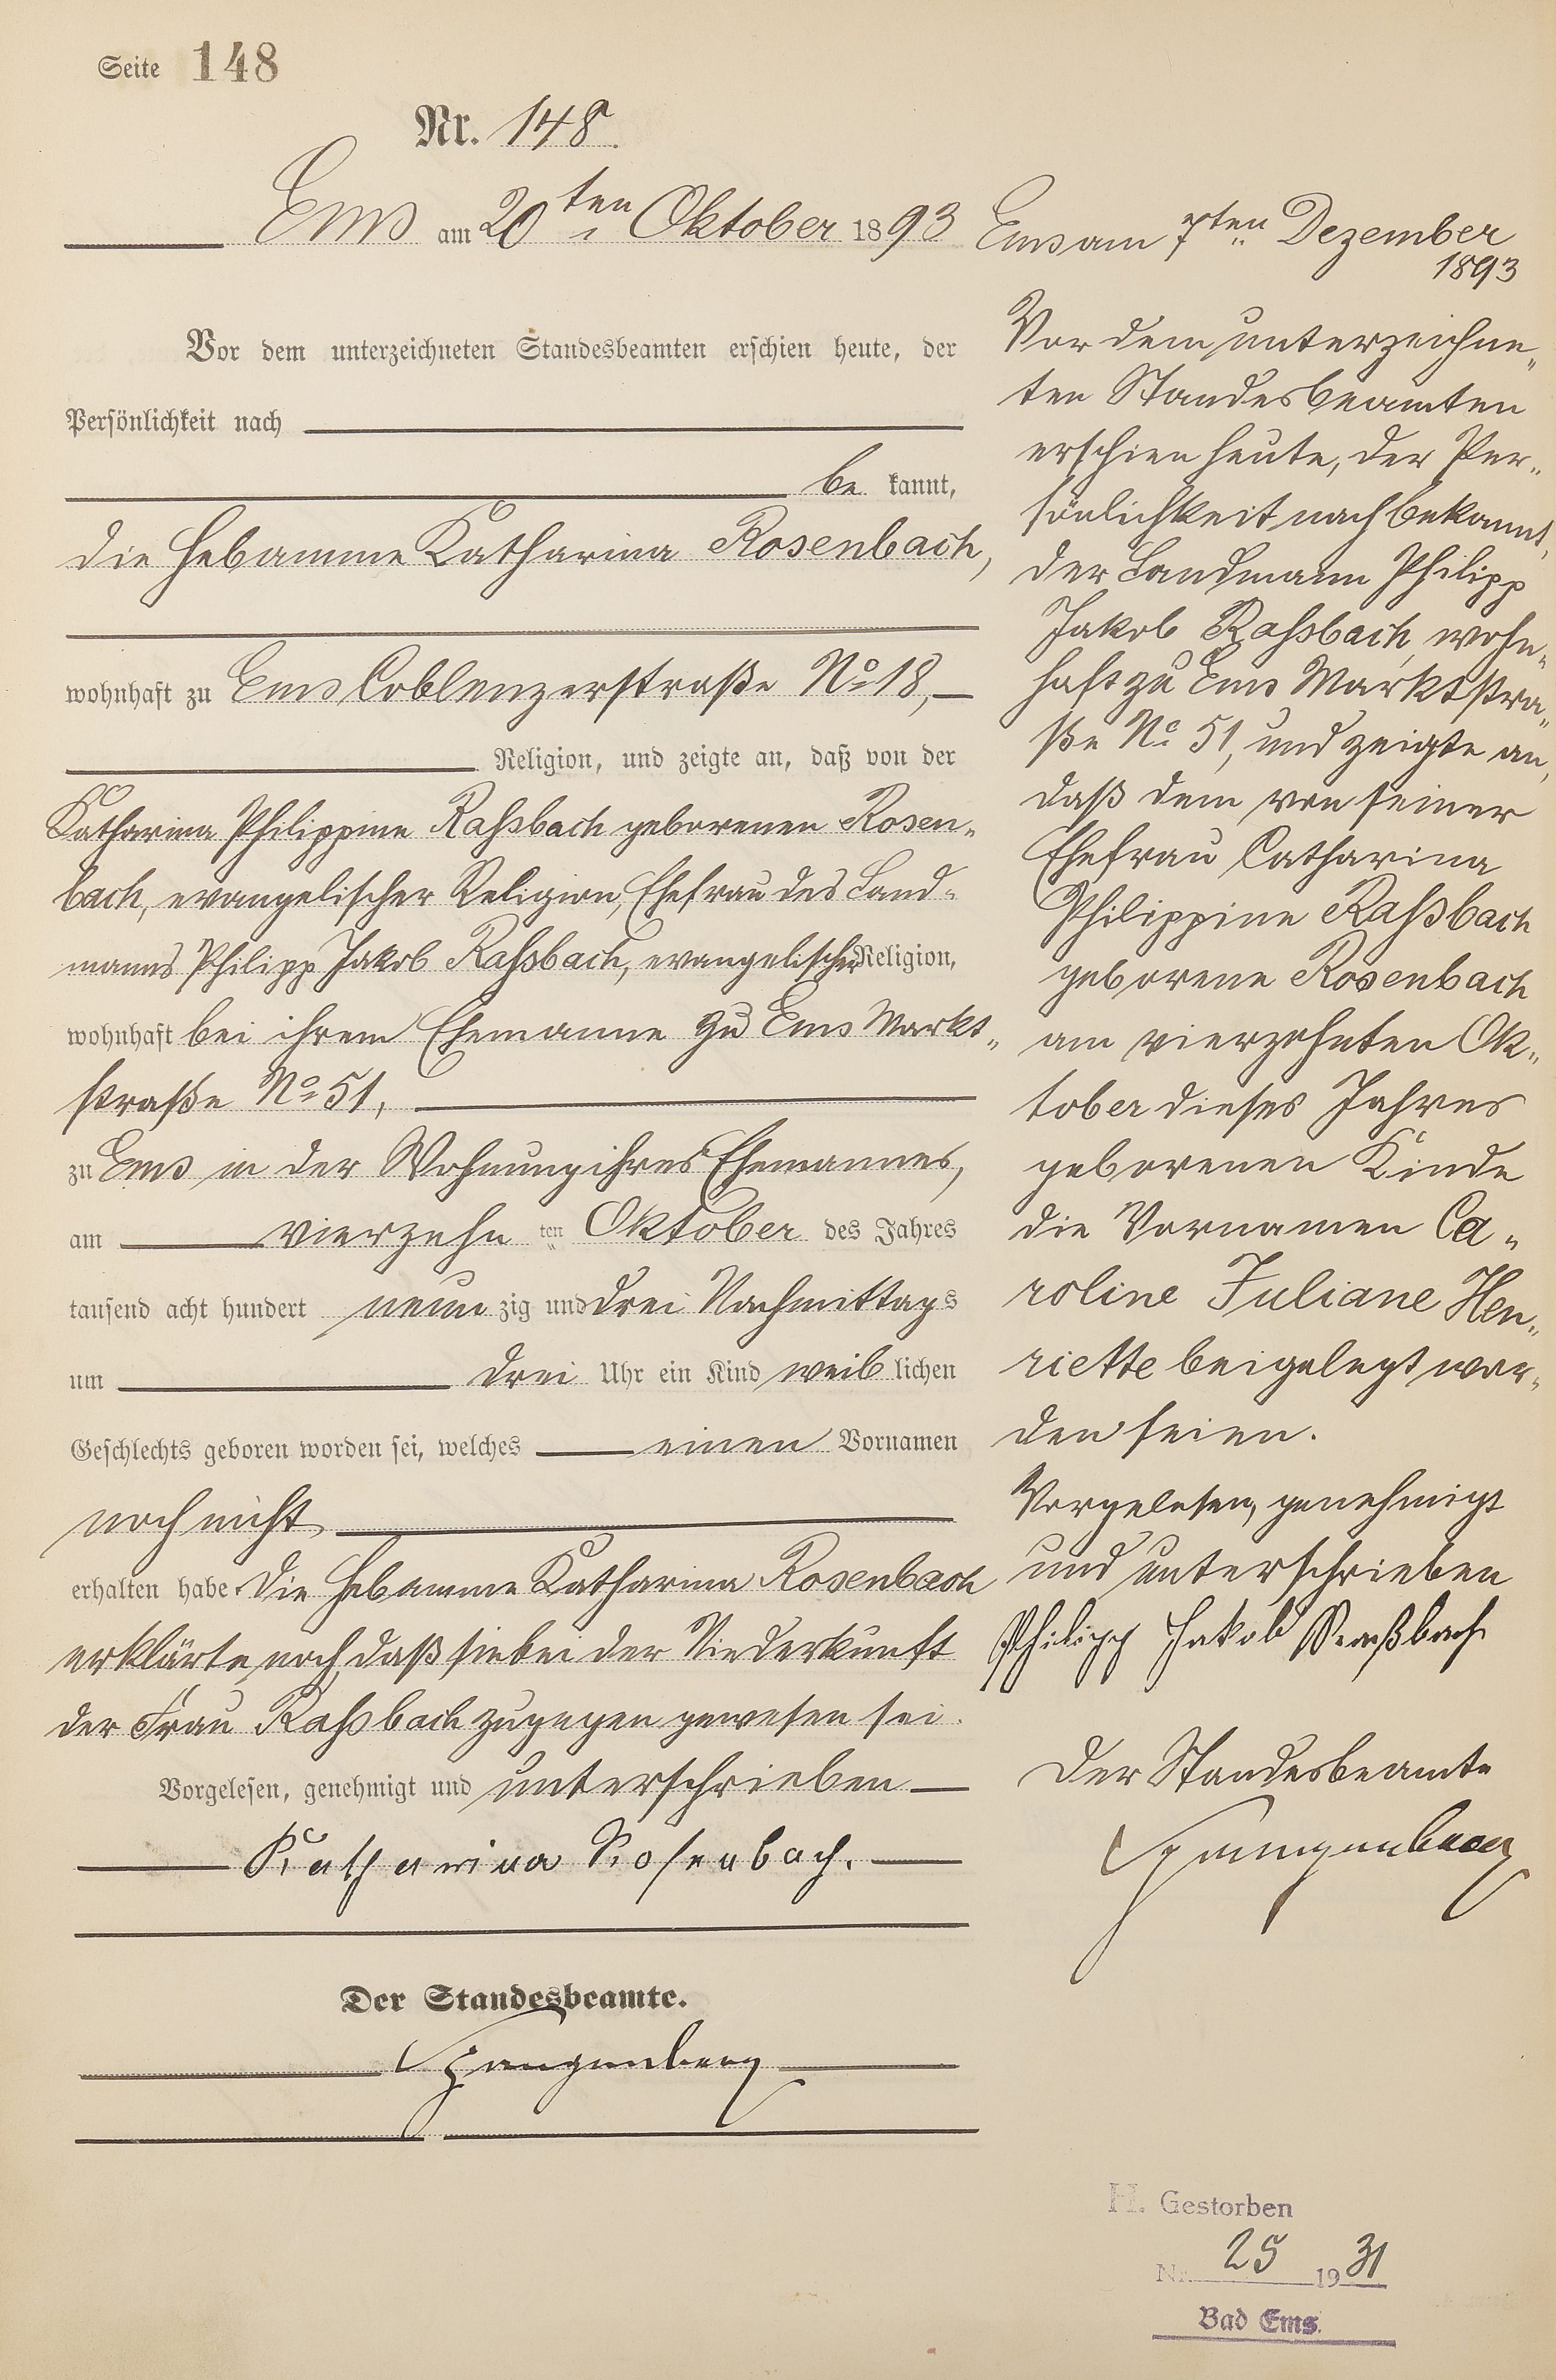 Seite 148
Nr. 148.
Ems am 20ten Oktober 1893
Vor dem unterzeichneten Standesbeamten erschien heute, der
Persönlichkeit nach
be kannt,
die Hebamme Katharina Rosenbach,
wohnhaft zu Ems Coblenzerstraße No 18,
Religion, und zeigte an, daß von der
Katharina Philippine Raßbach geborenen Rosen-
bach, evangelischer Religion, Ehefrau des Land-
manns Philipp Jakob Raßbach, evangelischer Religion,
wohnhaft bei ihrem Ehemanne zu Ems Markt-
straße No 51,
zu Ems in der Wohnung ihres Ehemannes,
am vierzehn ten Oktober des Jahres
tausend acht hundert neun zig und drei Nachmittags
um drei Uhr ein Kind weib lichen
Geschlechts geboren worden sei, welches einen Vornamen
noch nicht
erhalten habe. Die Hebamme Katharina Rosenbach
erklärte noch, daß sie bei der Niederkunft
der Frau Raßbach zugegen gewesen sei.
Vorgelesen, genehmigt und unterschrieben
Katharina Rosenbach.
Der Standesbeamte.
Spangenberg
Ems am 7ten Dezember
1893
Vor dem unterzeichne-
ten Standesbeamten
erschien heute, der Per-
sönlichkeit nach bekannt,
der Landmann Philipp
Jakob Raßbach, wohn-
haft zu Ems Marktstra-
ße No 51, und zeigte an,
daß dem von seiner
Ehefrau Catharina
Philippine Raßbach
geborene Rosenbach
am vierzehnten Ok-
tober dieses Jahres
geborenen Kinde
die Vornamen Ca-
roline Juliane Hen-
riette beigelegt wor-
den seien.
Vorgelesen, genehmigt
und unterschrieben
Philipp Jakob Raßbach
Der Standesbeamte
Spangenberg
H. Gestorben
Nr. 25 1931
Bad Ems.